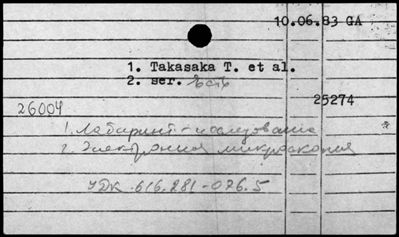 10.06.83 GA
1. Takasaka T. et al.
2. ser. есть
25274
26004
1. Лабиринт - исследование
2. Электронная микроскопия
УДК 616.281-076.5